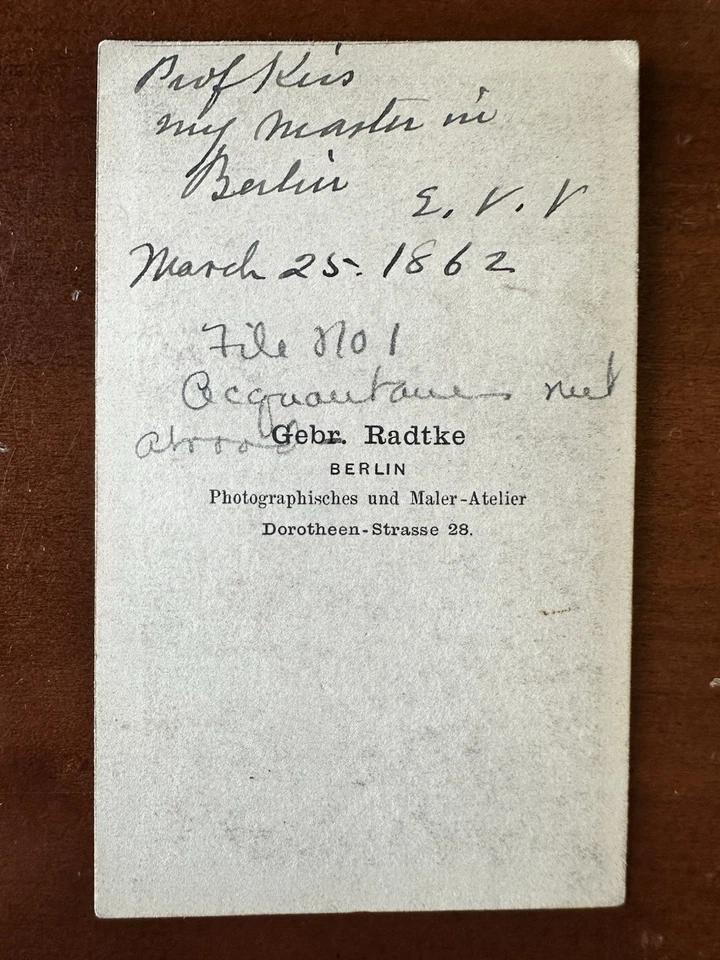 Prof Kiss
my master in
Berlin
E. V. V
March 25. 1862
File No 1
Acquantances met
abroad
Gebr. Radtke
BERLIN
Photographisches und Maler-Atelier
Dorotheen-Strasse 28.